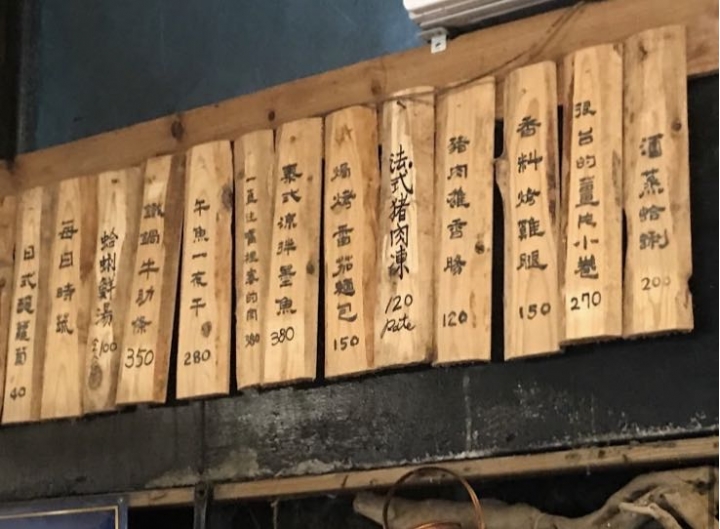 酒蒸蛤蜊
200
很台的薑片小卷
270
香料烤雞腿
150
豬肉雜香腸
120
法式豬肉凍
120
Pate
焗烤番茄麵包
150
泰式涼拌墨魚
380
的肉
380
午魚一夜干
280
鐵鍋牛肋條
350
蛤蜊鮮湯
100
每日時蔬
日式醃蘿蔔
40